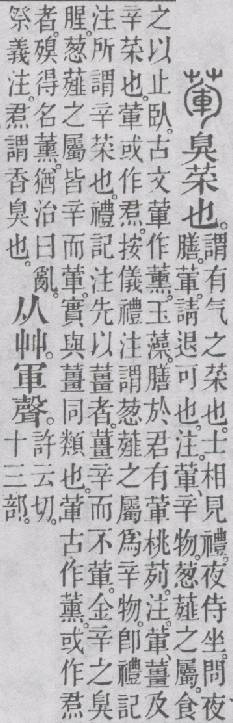 葷 臭菜也。謂有气之菜也。士相見禮。夜侍坐。問夜
膳葷。請退可也。注。葷、辛物。葱薤之屬。食
之以止臥。古文葷作薰。玉藻。膳於君有葷桃茢。注。葷、薑及
辛菜也。葷或作焄。按儀禮注謂葱薤之屬爲辛物。卽禮記
注所謂辛菜也。禮記注先以薑者。薑辛而不葷。金辛之臭
腥。葱薤之屬皆辛而葷。實與薑同類也。葷古作薰。或作焄
者。殠得名薰。猶治曰亂。
祭義注。焄謂香臭也。
从艸。軍聲。許云切。
十三部。